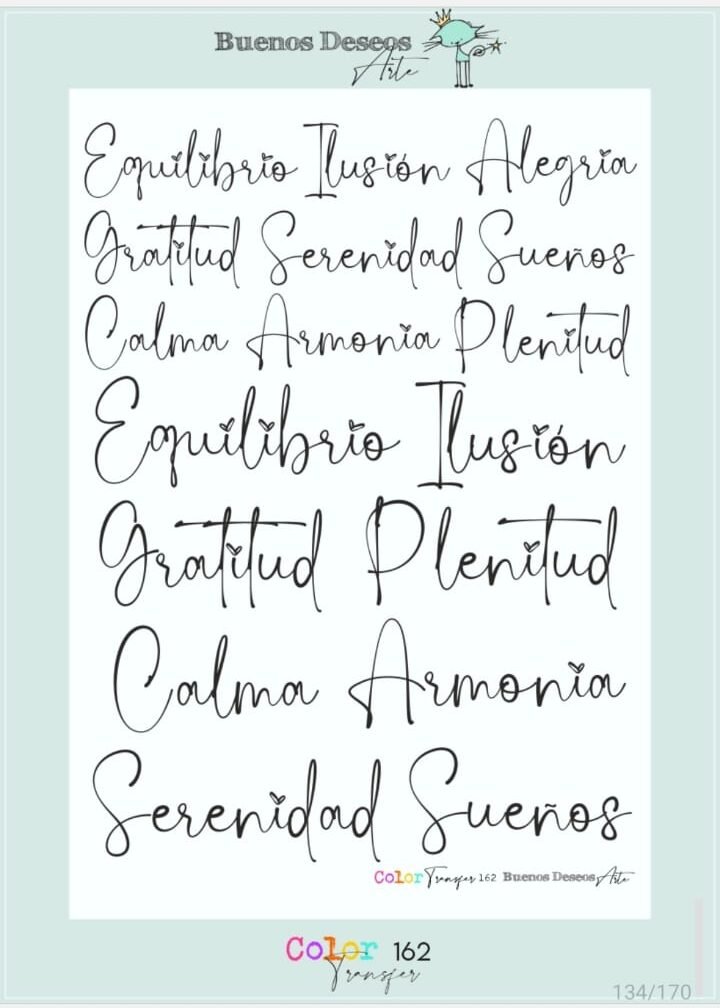 Buenos Deseos
Arte
Equilibrio Ilusión Alegria
Gratitud Serenidad Sueños
Calma Armonia Plenitud
Equilibrio Ilusión
Gratitud Plenitud
Calma Armonia
Serenidad Sueños
Color Transfer 162 Buenos Deseos Arte
Color 162
Transfer
134/170